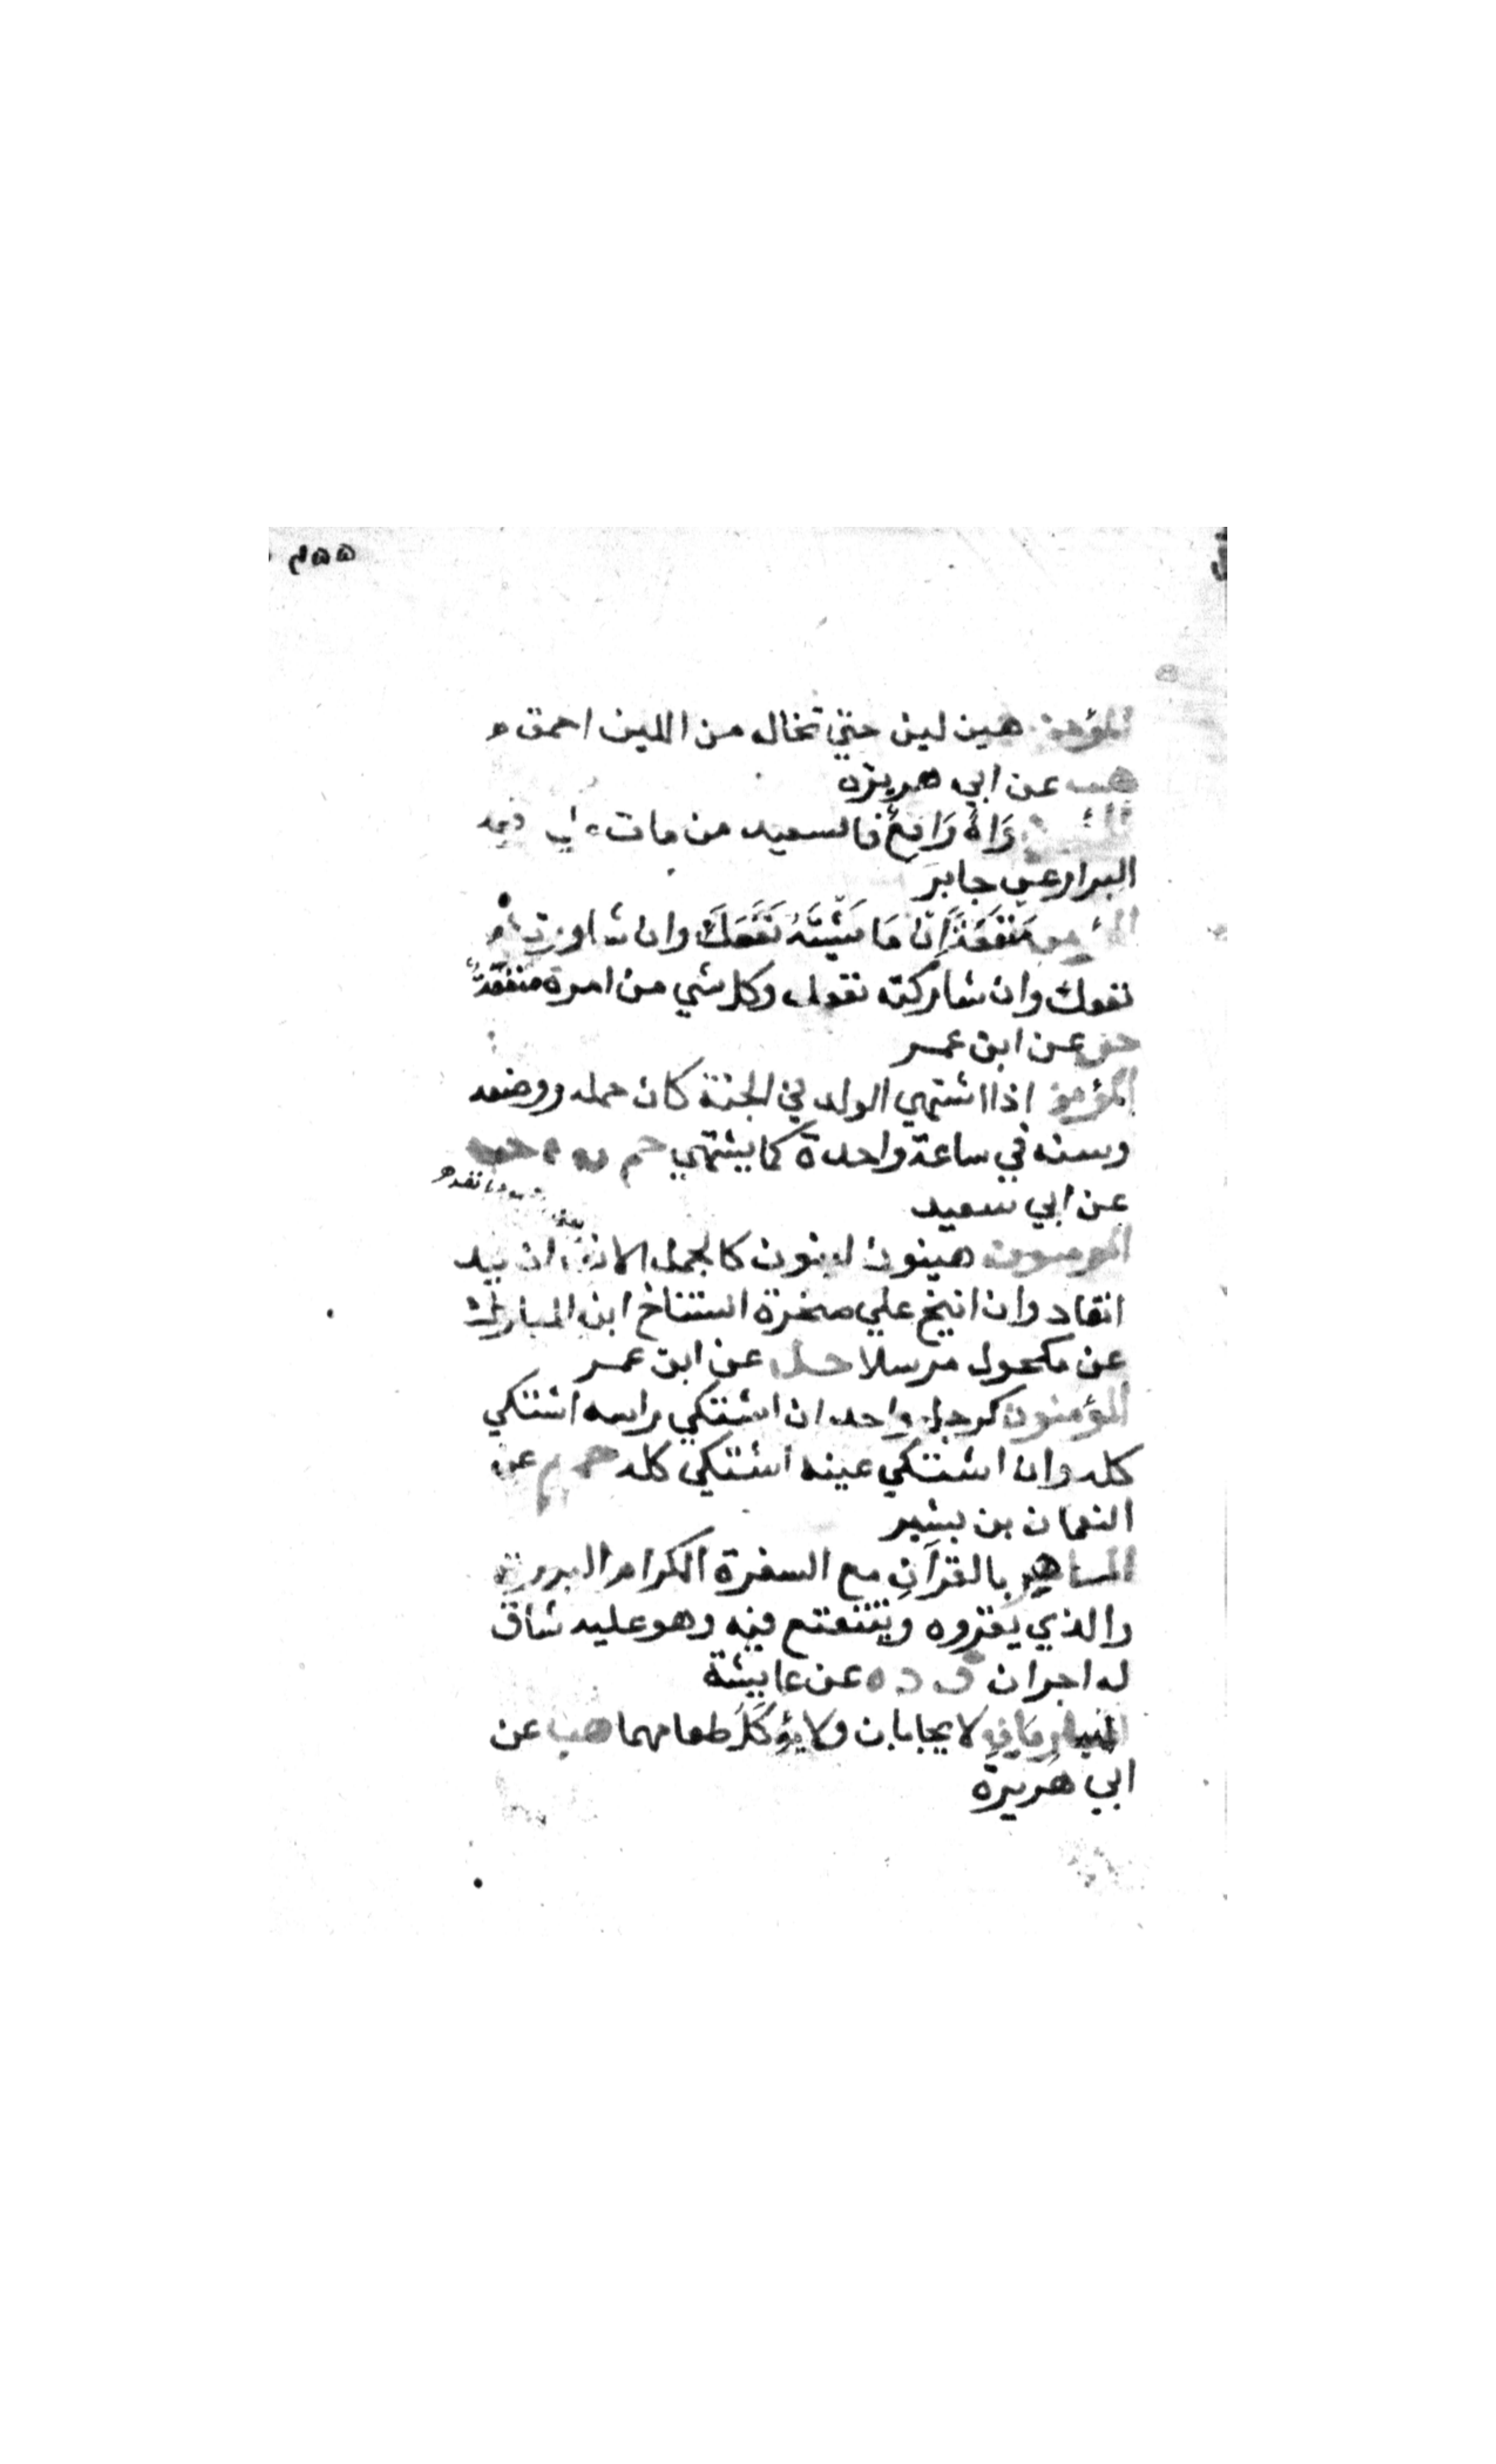 ٤٥٥
المؤمن هين لين حتي تخال من اللين احمق
هب عن ابي هريرة
وَاهٌ رَاقِعٌ فالسعيد من مات علي رقعه
البزار عن جابر
المؤمن مَنْفَعَةٌ اِنْ مَاشَيْتَهُ نَفَعَكَ وان شاورته
نفعك وان شاركته نفعك وكل شي من امره منفعةٌ
حل عن ابن عمر
المؤمن اذا اشتهي الولد في الجنة كان حمله ووضعه
وسنه في ساعة واحدة كما يشتهي حم ت ه حب
عن ابي سعيد
المومنون هينون لينون كالجمل الانف ان قيد
انقاد وان انيخ علي صخرة استناخ ابن المبارك
عن مكحول مرسلا عن ابن عمر
المؤمنون كرجل واحد ان اشتكي راسه اشتكي
كله وان اشتكي عينه اشتكي كله حم م عن
النعمان بن بشير
الماهر بالقرآن مع السفرة الكرام البررة
والذي يقروه ويتتعتع فيه وهو عليه شاق
له اجران ق د ه عن عايشة
المتباريان لا يجابان ولا يؤكل طعامهما هب عن
ابي هريرة